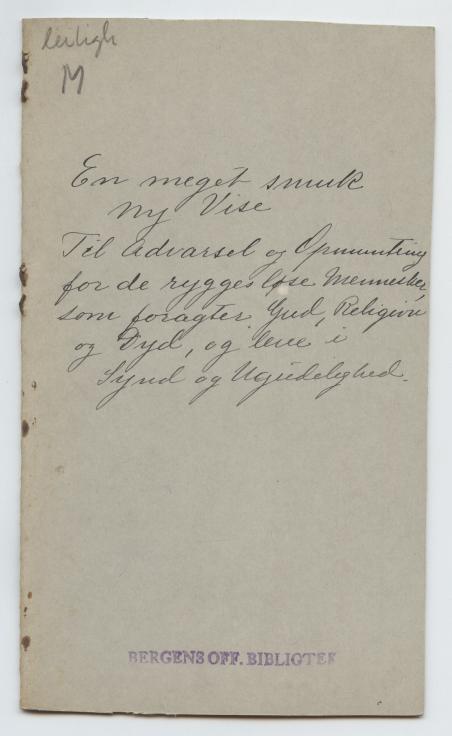 leiligh
M
En meget smuk
ny Vise
Til Advarsel og Opmuntring
for de ryggesløse Mennesker,
som foragter Gud, Religion
og Dyd, og leve i
Synd og Ugudelighed.
BERGENS OFF. BIBLIOTEK